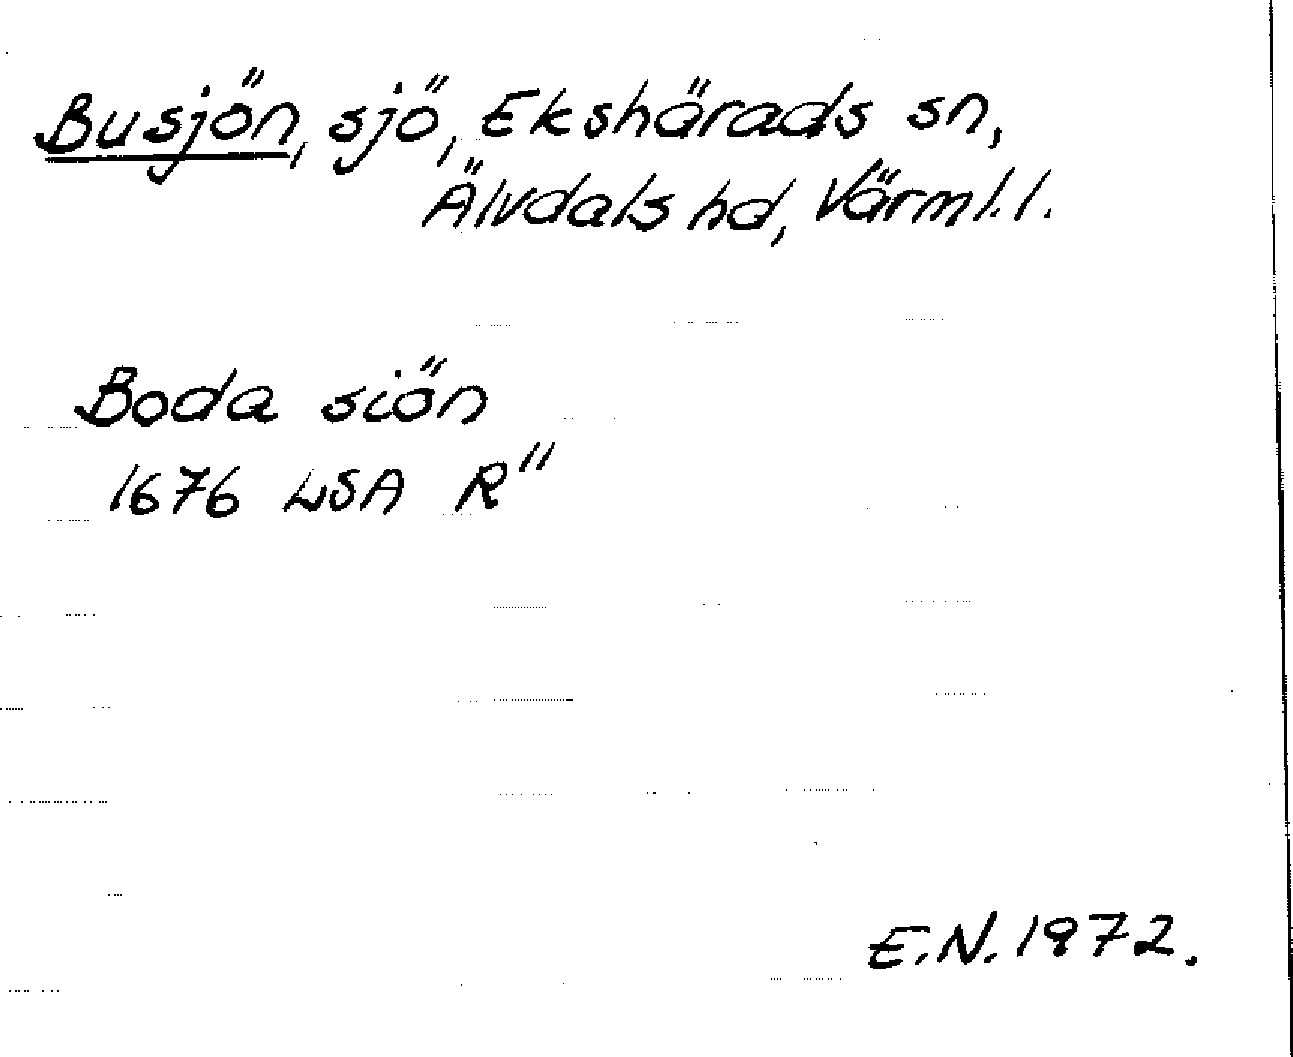 Busjön, sjö, Ekshärads sn,
Älvdals hd, Värml. l.
Boda siön
1676 LSA R"
E.N. 1972.